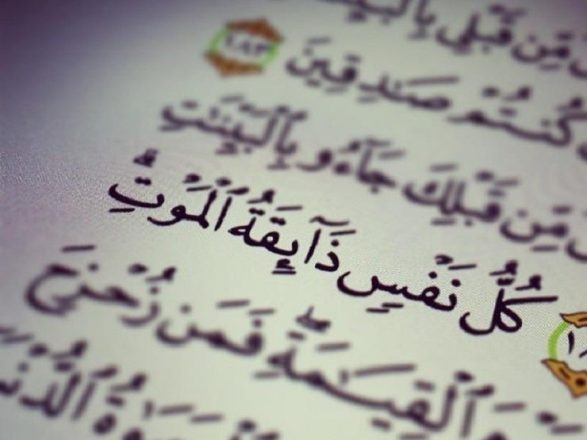 مِّن قَبْلِى بِٱلْبَيِّنَٰتِ
كُنتُمْ صَٰدِقِينَ ١٨٣
مِّن قَبْلِكَ جَآءُو بِٱلْبَيِّنَٰتِ
كُلُّ نَفْسٍ ذَآئِقَةُ ٱلْمَوْتِ ۗ
ٱلْقِيَٰمَةِ ۖ فَمَن زُحْزِحَ
ٱلدُّنْ